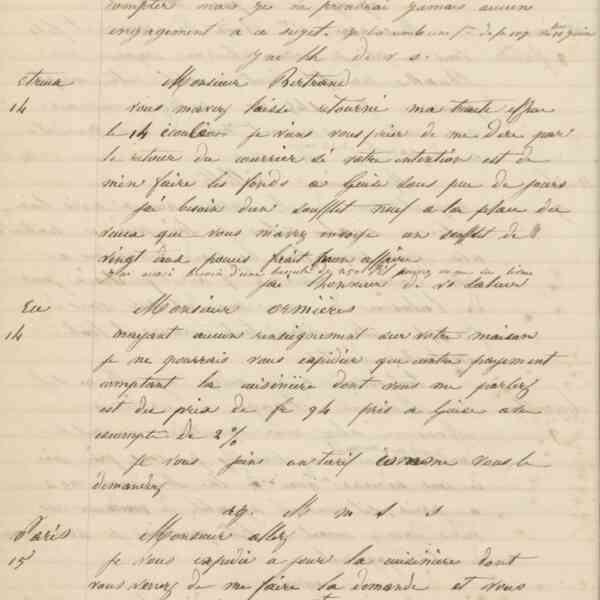 compter mais je ne prendrai jamais aucun
engagement a ce sujet.
j'ai lh de v s.
Etreux Monsieur Bertrand
14 vous mavez laissé retourné ma traite
le 14 écoulé je viens vous prier de me dire par
le retour du courrier si votre intention est de
m'en faire les fonds a Guise sous peu de jours
j'ai besoin d'un soufflet neuf a la place du
vieux que vous m'avez envoyé un soufflet de
vingt deux pouces ferait mon affaire
j'ai aussi besoin d'une
j'ai l'honneur de vs saluer
Eu Monsieur ormières
14 nayant aucun renseignement sur votre maison
je ne pourrais vous expédier que contre payement
comptant la cuisinière dont vous me parlez
est du prix de fr 94 pris a Guise avec
escompte de 2%
je vous joins un tarif comme vous le
demandez
ag. M m s. s
Paris Monsieur allez
15 je vous expédie a jour la cuisinière dont
vous venez de me faire la demande et vous